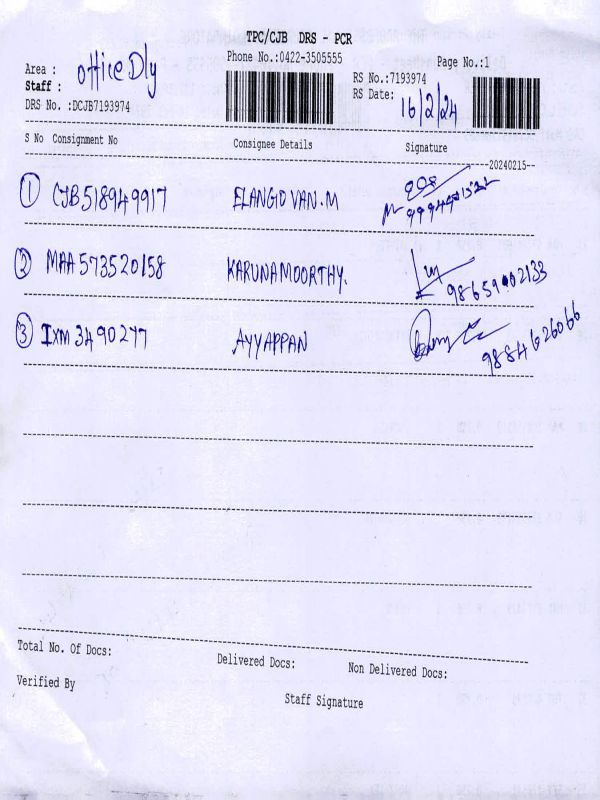 TPC/CJB DRS - PCR
Phone No.:0422-3505555
Page No.:1
Area : office Dly
Staff :
RS No.:7193974
RS Date: 16/2/24
DRS No. :DCJB7193974
S No Consignment No Consignee Details Signature
20240215
1 CJB518949917 ELANGOVAN.M
2 MAA573520158 KARUNAMOORTHY.
9865902133
3 IXM3490277 AYYAPPAN
9884626066
Total No. Of Docs: Delivered Docs: Non Delivered Docs:
Verified By Staff Signature